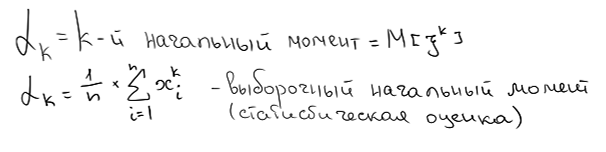 α_k = k-й начальный момент = M[ξ^k]
α_k = 1/n × Σ_{i=1}^{n} x_i^k - выборочный начальный момент
(статистическая оценка)